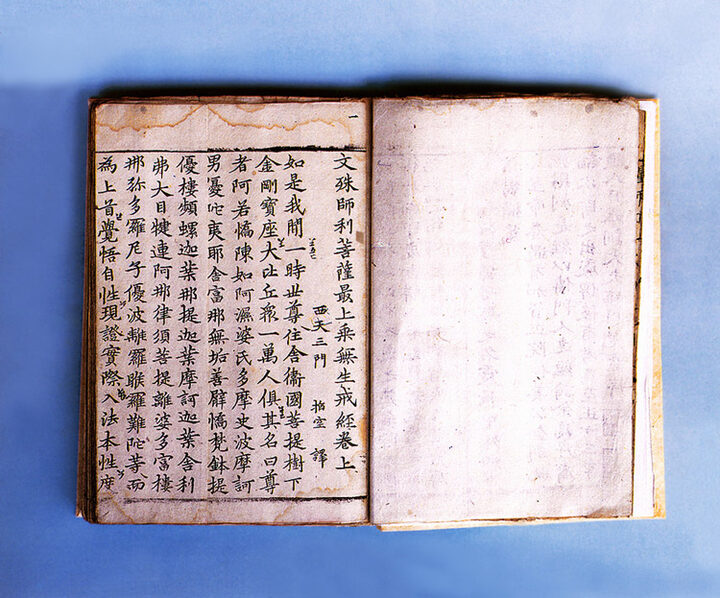 一
文殊師利菩薩最上乘無生戒經卷上
西天三門 指空 譯
如是我聞一時世尊住舍衛國菩提樹下
金剛寶座大比丘衆一萬人俱其名曰尊
者阿若憍陳如阿濕婆氏多摩史波摩訶
男憂陀夷耶舍富那無垢善臂憍梵鉢提
優樓頻螺迦葉那提迦葉摩訶迦葉舍利
弗大目犍連阿那律須菩提離婆多富樓
那弥多羅尼子優波離羅睺羅難陀等而
為上首覺悟自性現證實際入法本性度